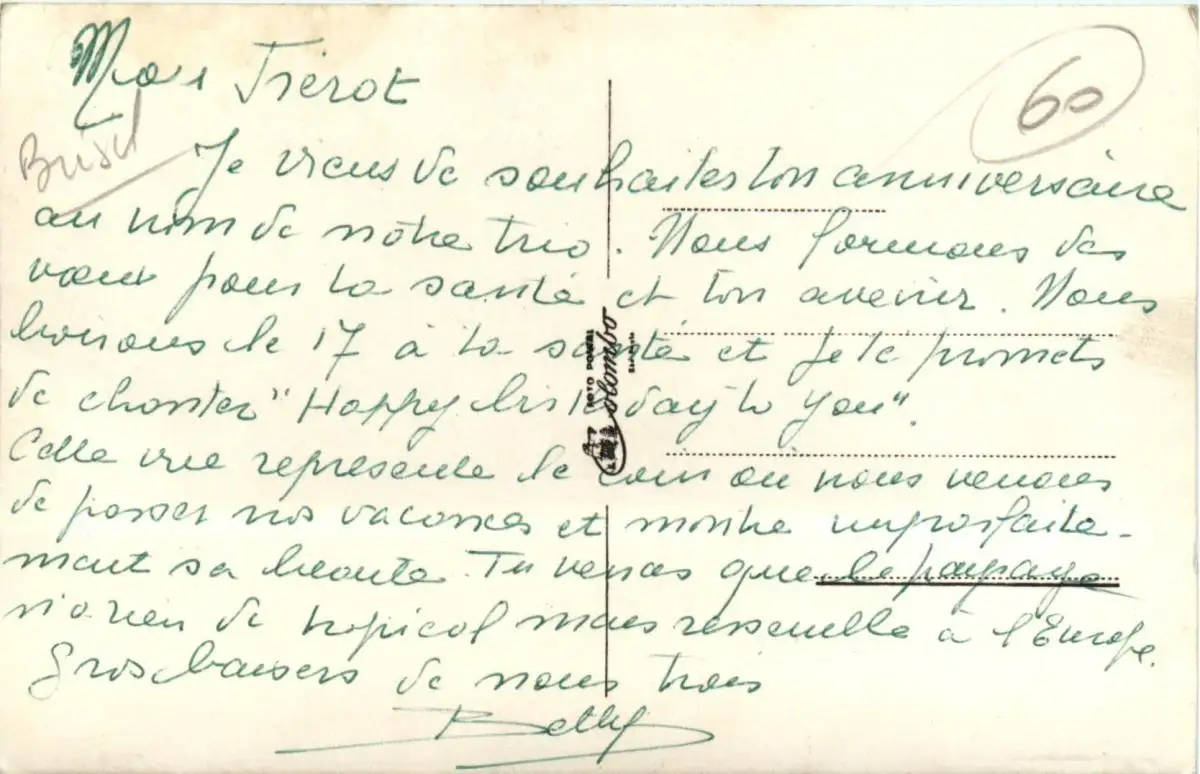 Mon Piérot
60
Brésil
Je viens de souhaiter ton anniversaire
au nom de notre trio. Nous formons des
vœux pour ta santé et ton avenir. Nous
boirons le 17 à ta santé et je te promets
de chanter "Happy birthday to you".
Cette vue represente le coin ou nous venons
de passer nos vacances et montre imparfaite-
ment sa beauté. Tu verras que le paysage
n'a rien de tropical mais ressemble à l'Europe.
Gros baisers de nous trois
Betty
FOTO POSTAL
Colombo